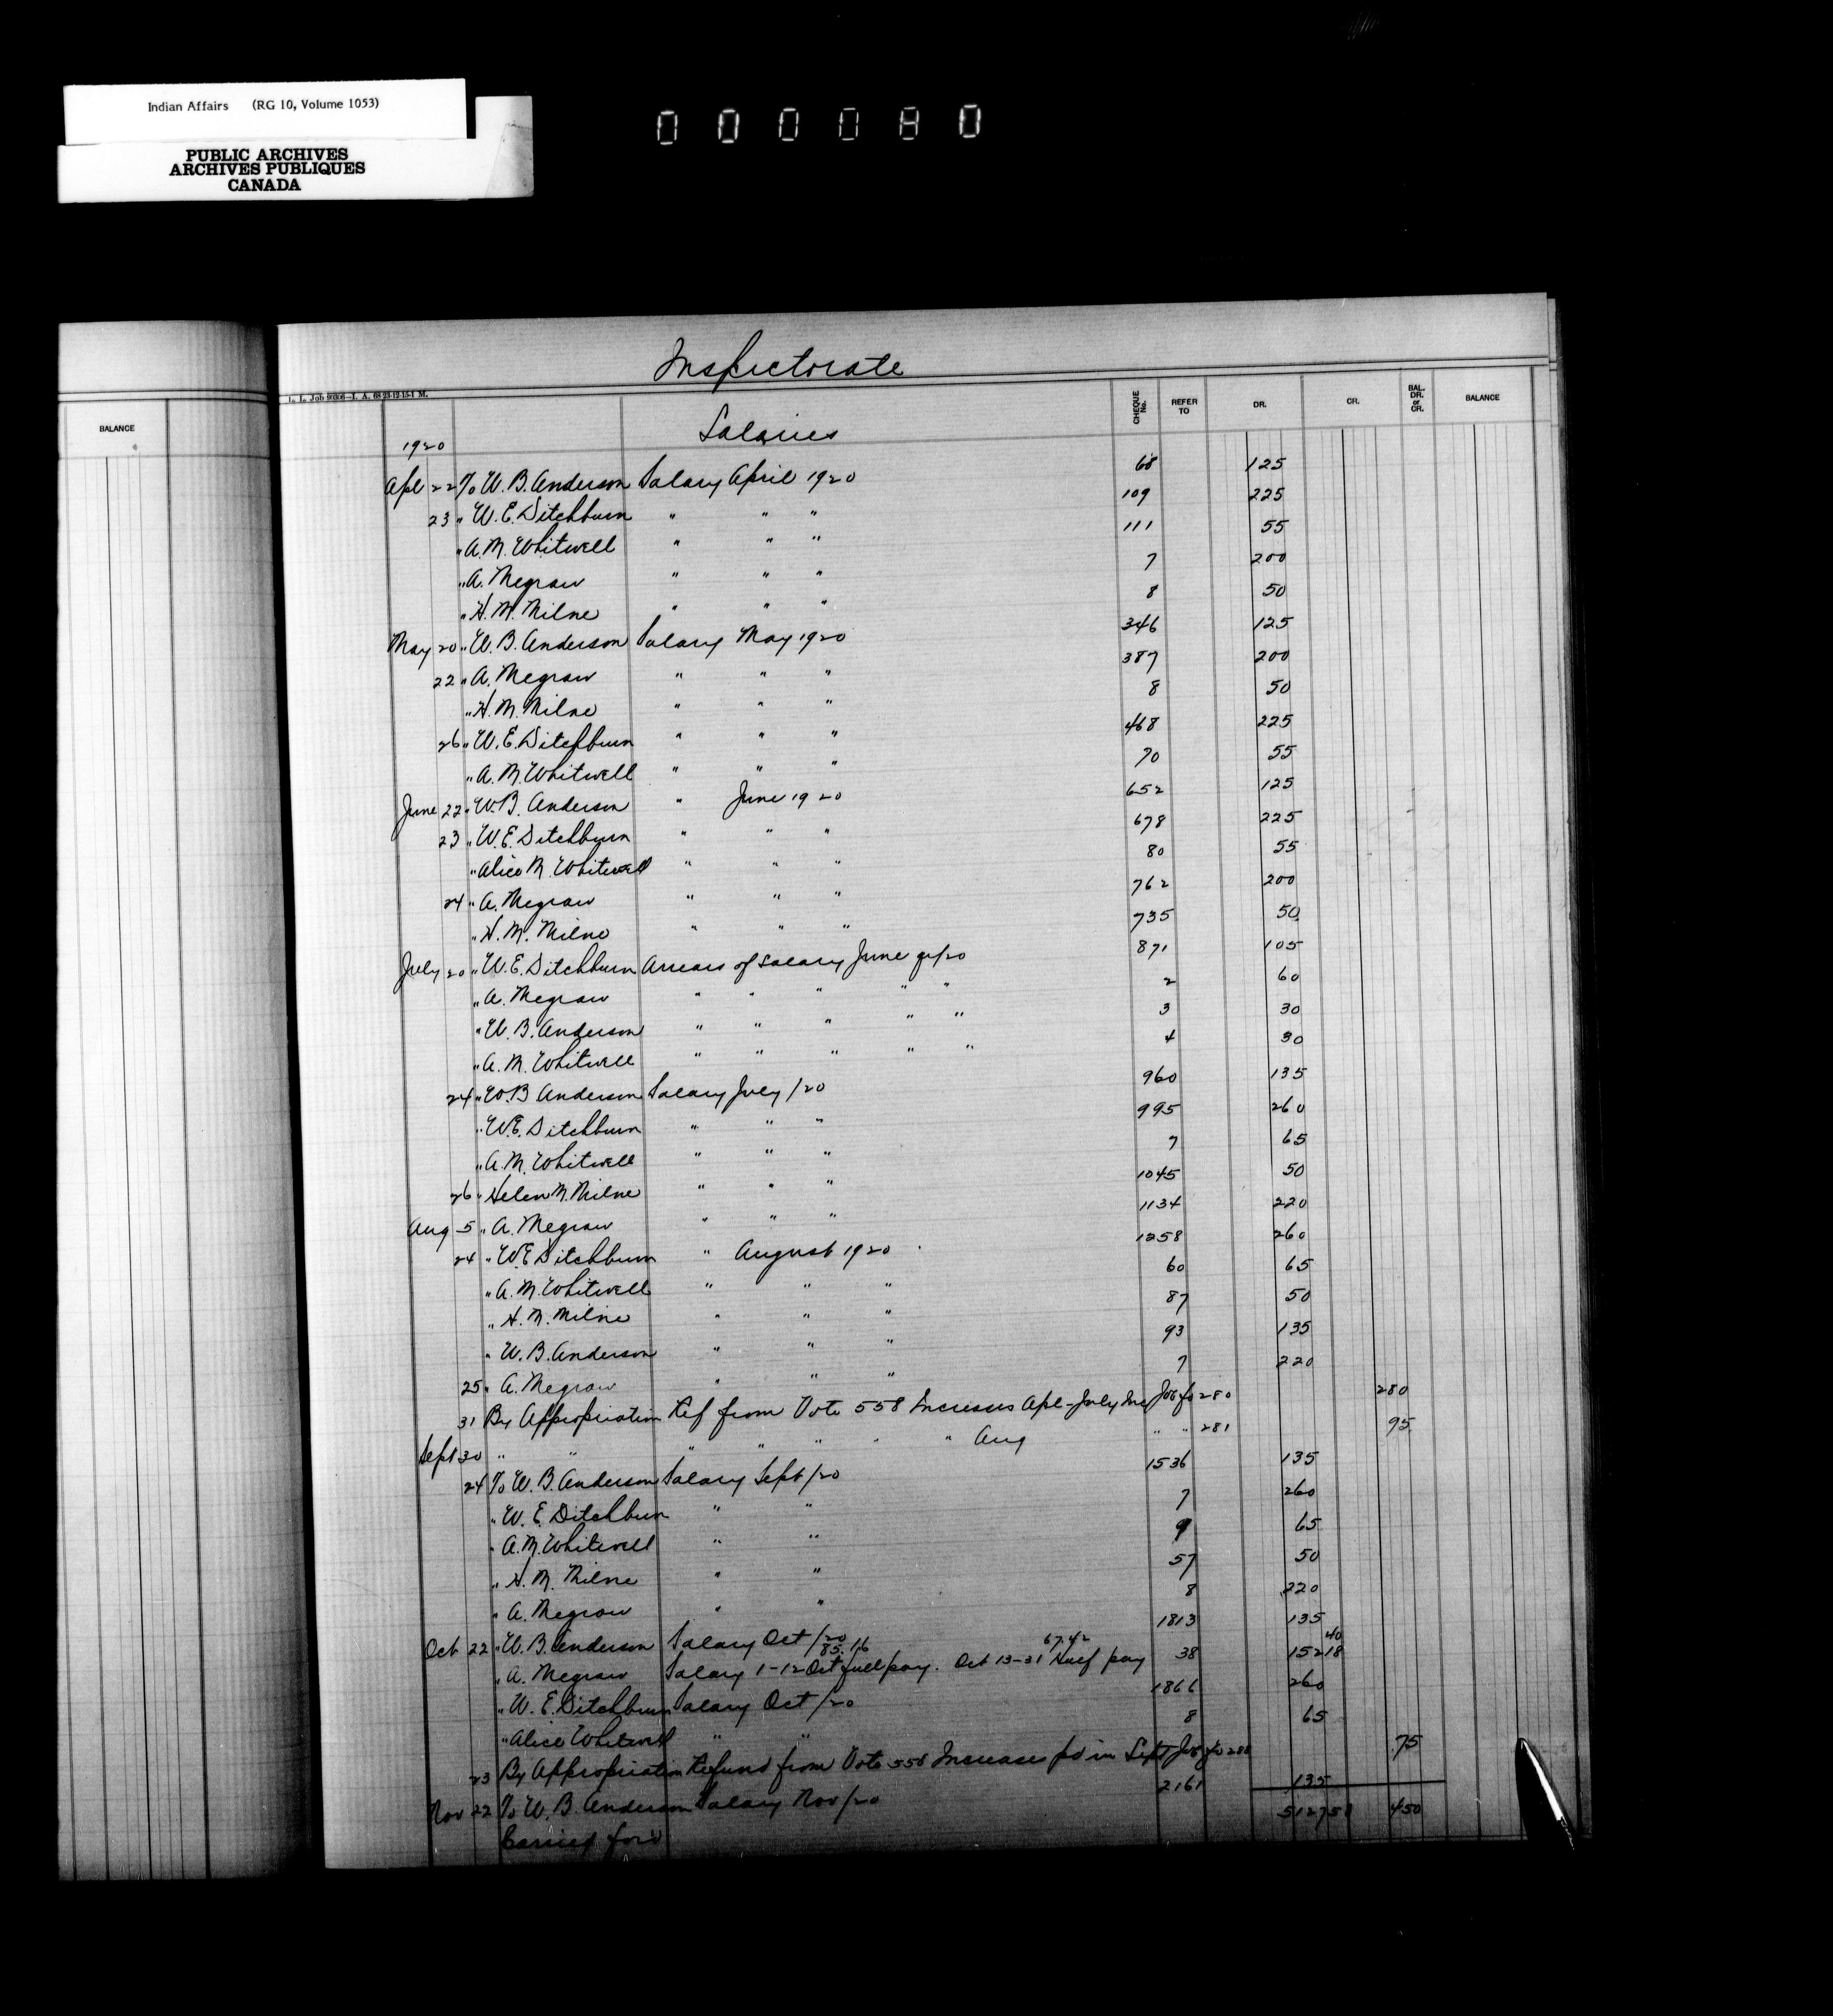 Indian Affairs (RG 10, Volume 1053)
PUBLIC ARCHIVES
ARCHIVES PUBLIQUES
CANADA
000080
Inspectorate
BALANCE
CHEQUE No. REFER TO DR. CR. BAL. DR. or CR. BALANCE
1920 Salaries
Apl 22 To W. B. Anderson Salary April 1920 68 125
23 " W. E. Ditchburn " " " 109 225
" A. M. Whitwell " " " 111 55
" A. Megraw " " " 7 200
" H. M. Milne " " " 8 50
May 20 " W. B. Anderson Salary May 1920 346 125
22 " A. Megraw " " " 387 200
" H. M. Milne " " " 8 50
26 " W. E. Ditchburn " " " 468 225
" A. M. Whitwell " " " 70 55
June 22 " W. B. Anderson " June 1920 652 125
23 " W. E. Ditchburn " " " 678 225
" Alice M. Whitwell " " " 80 55
24 " A. Megraw " " " 762 200
" H. M. Milne " " " 735 50
July 20 " W. E. Ditchburn Arrears of salary June qr/20 871 105
" A. Megraw " " " " " 2 60
" W. B. Anderson " " " " " 3 30
" A. M. Whitwell " " " " " 4 30
24 " W. B Anderson Salary July /20 960 135
" W. E. Ditchburn " " " 995 260
" A. M. Whitwell " " " 7 65
26 " Helen M. Milne " " " 1045 50
Aug 5 " A. Megraw " " " 1134 220
24 " W. E Ditchburn " August 1920 1258 260
" A. M. Whitwell " " " 60 65
" H. M. Milne " " " 87 50
" W. B. Anderson " " " 93 135
25 " A. Megraw " " " 7 220
31 By Appropriation Ref from Vote 558 Increases Apl-July Inc Jo fo 280 280
Sept 30 " " " " " " " Aug " " 281 95
24 To W. B. Anderson Salary Sept /20 1536 135
" W. E. Ditchburn " " 7 260
" A. M. Whitwell " " 9 65
" H. M. Milne " " 57 50
" A. Megraw " " 8 220
Oct 22 " W. B. Anderson Salary Oct /20 1813 135
85.16 67.42 40
" A. Megraw Salary 1-12 Oct full pay. Oct 13-31 Half pay 38 152 18
" W. E. Ditchburn Salary Oct /20 1866 260
" Alice Whitwell " " 8 65
23 By Appropriation Refund from Vote 558 Increases pd in Sept Jo fo 288 75
Nov 22 To W. B. Anderson Salary Nov /20 2161 135
Carried ford 5127 58 450